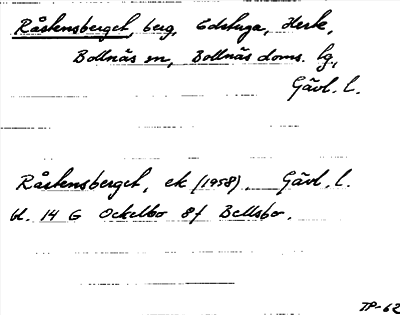 Råstensberget, berg, Edstuga, Herte,
Bollnäs sn, Bollnäs doms. lg,
Gävl. l.
Råstensberget, ek (1958). Gävl. l.
bl. 14 G Ockelbo 8f Bellsbo.
TP-62